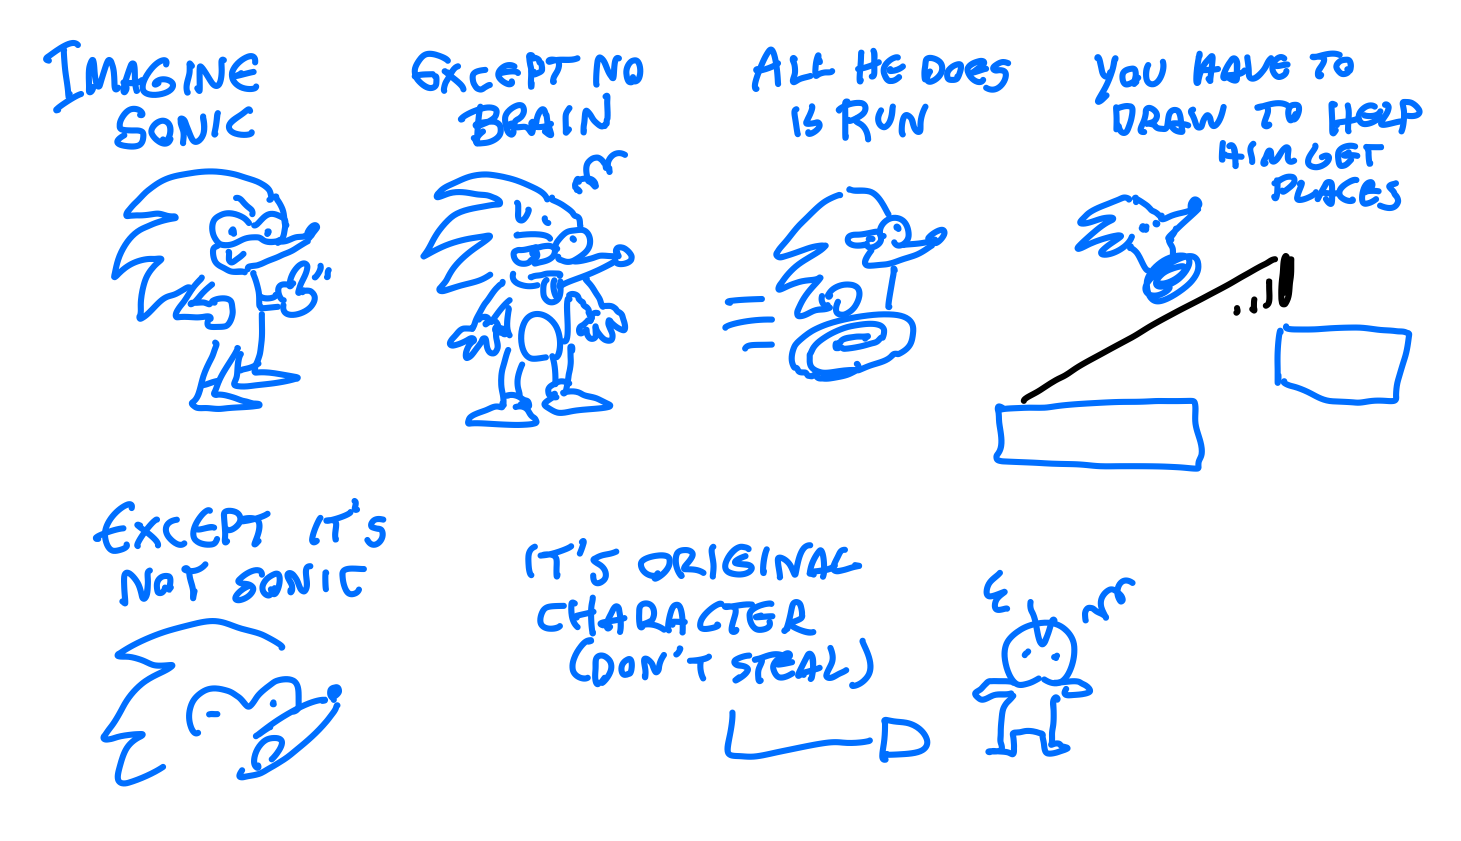 IMAGINE
SONIC
EXCEPT NO
BRAIN
ALL HE DOES
IS RUN
YOU HAVE TO
DRAW TO HELP
HIM GET
PLACES
EXCEPT IT'S
NOT SONIC
IT'S ORIGINAL
CHARACTER
(DON'T STEAL)